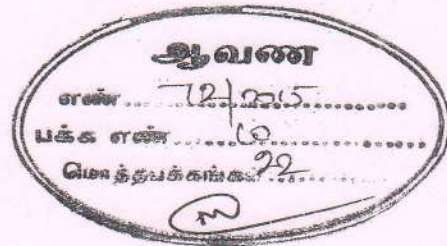 ஆவண
எண் 72/2015
பக்க எண்
மொத்தபக்கங்கள் 22